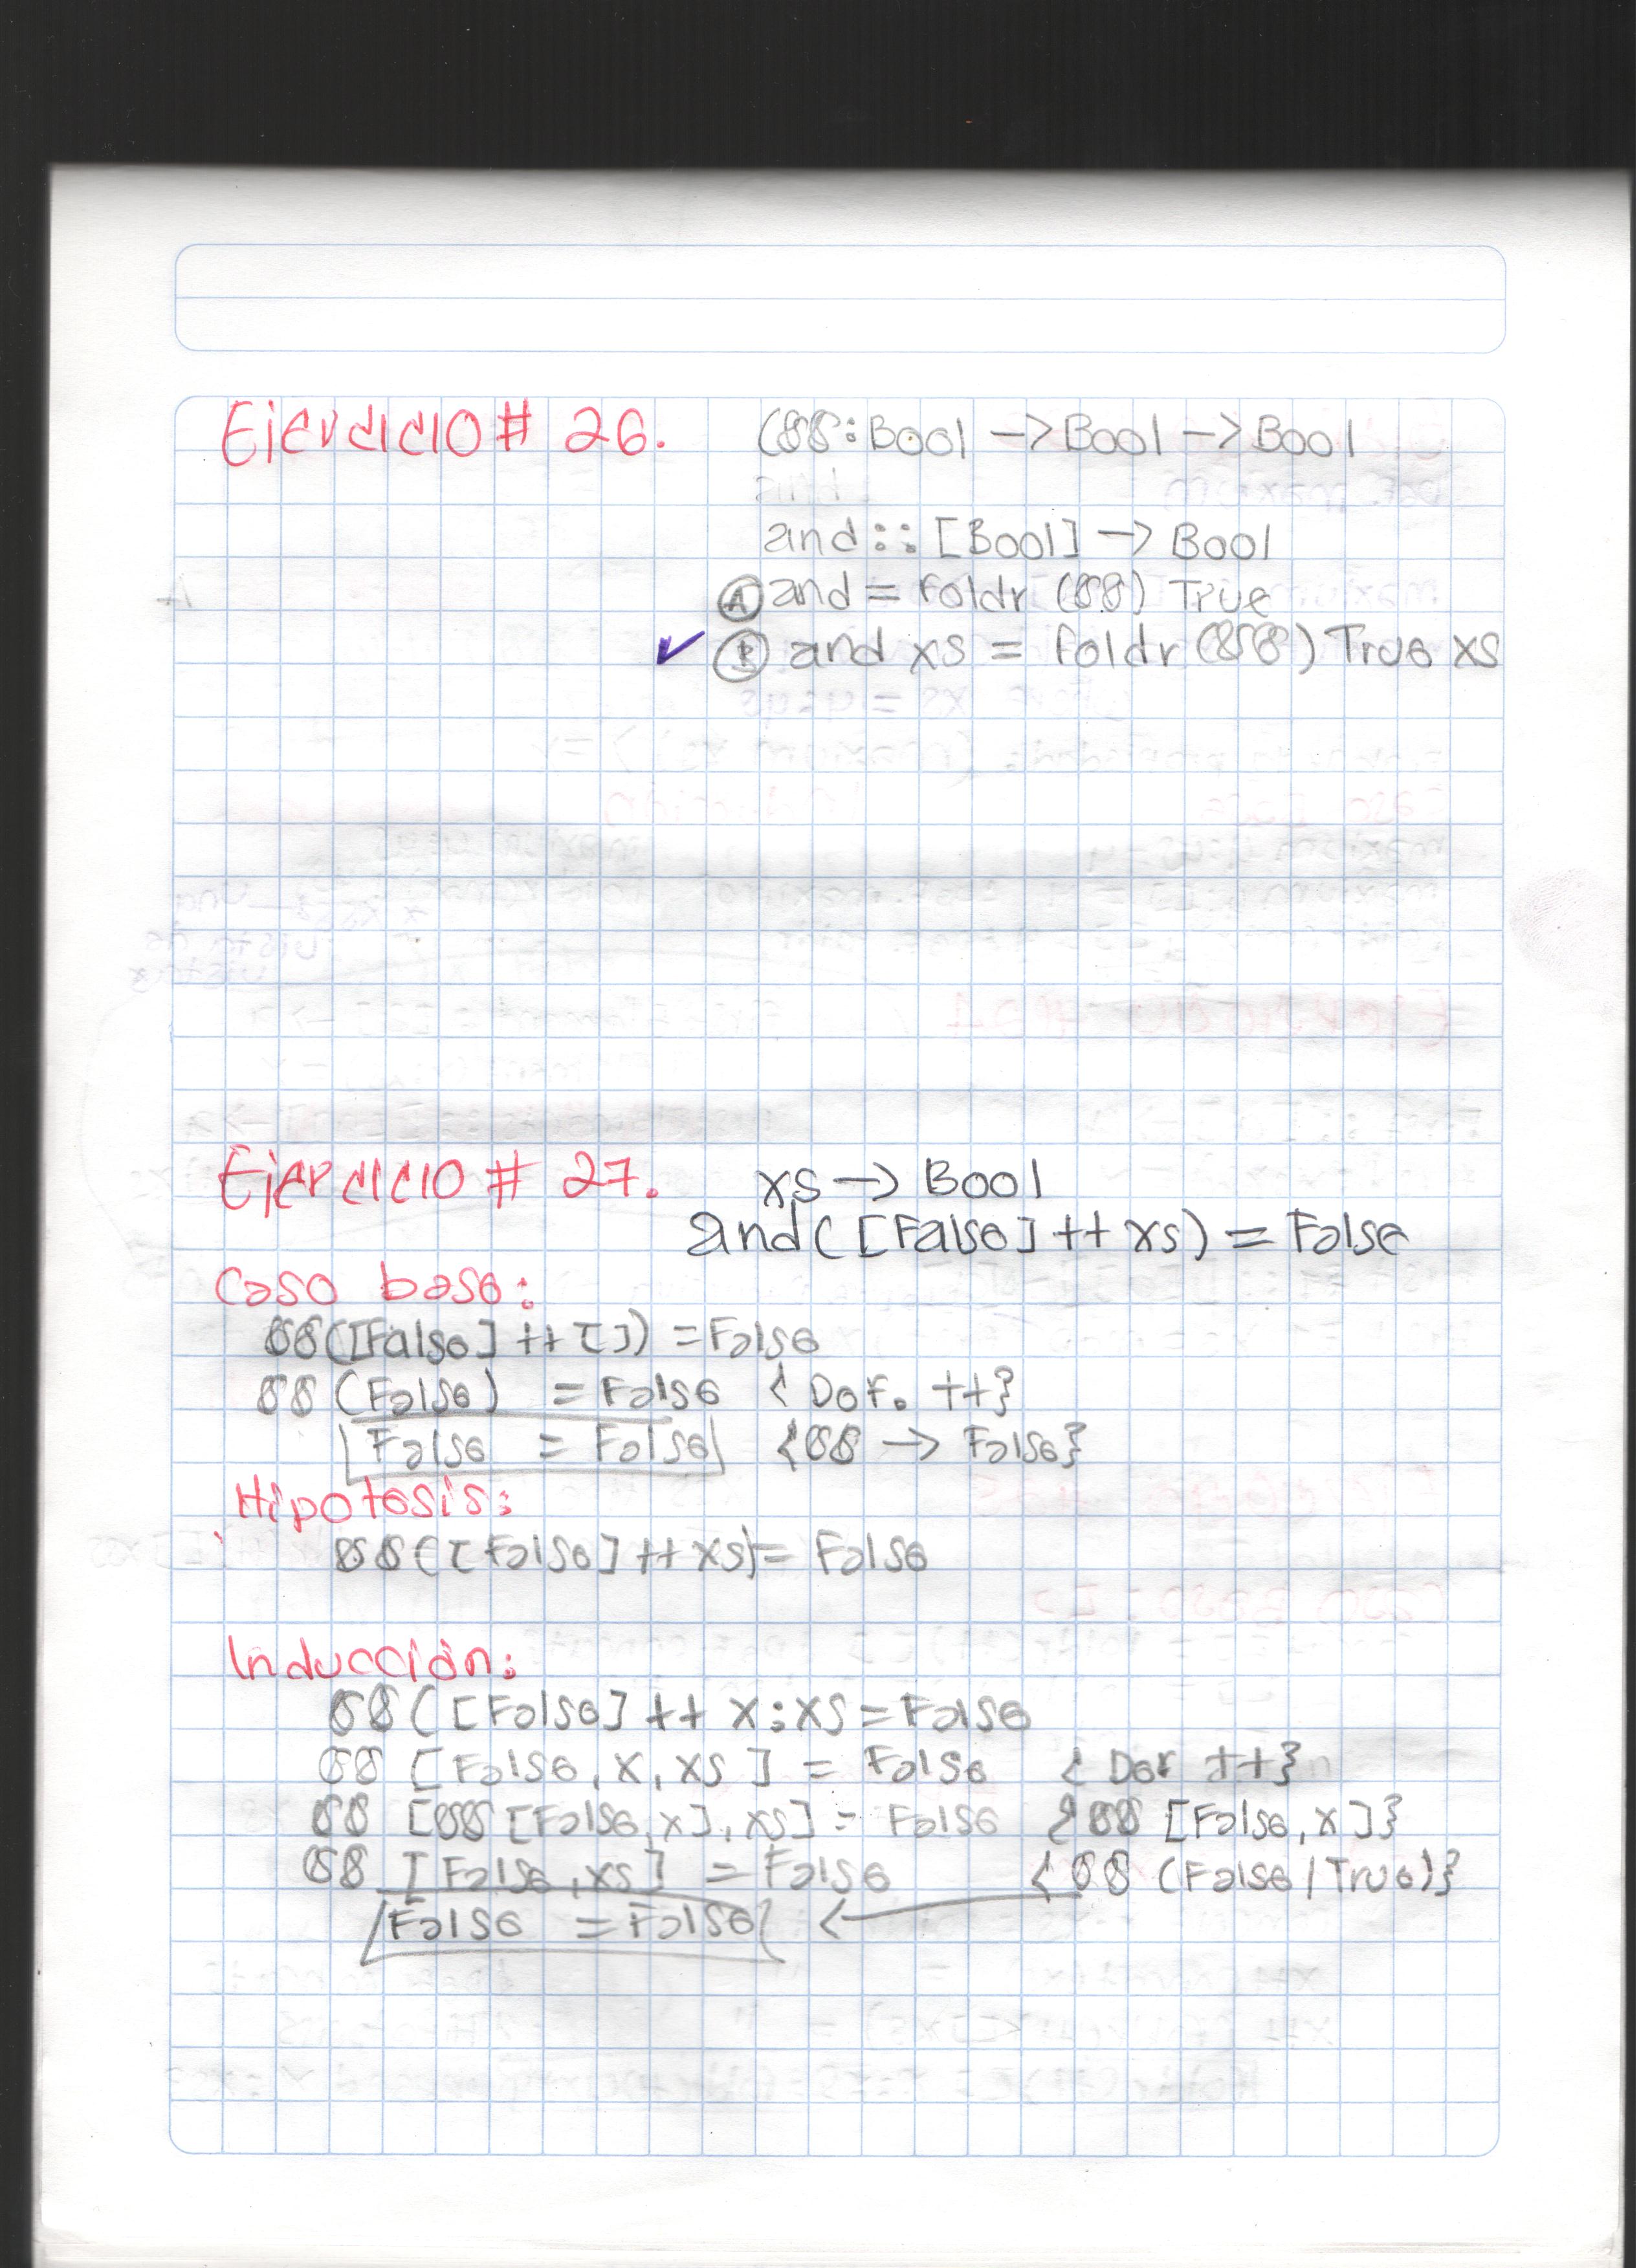 Ejercicio # 26.
(&&:Bool -> Bool -> Bool
and:: [Bool] -> Bool
Ⓐ and = foldr (&&) True
✓ Ⓑ and xs = foldr (&&) True xs
Ejercicio # 27.
xs -> Bool
and([False] ++ xs) = False
Caso base:
&&([False] ++ []) = False
&& (False) = False {Def. ++}
False = False {&& -> False}
Hipotesis:
&&([False] ++ xs) = False
Inducción:
&& ([False] ++ x:xs = False
&& [False, x, xs] = False {Def ++}
&& [&& [False, x], xs] = False {&& [False, x]}
&& [False, xs] = False {&& (False/True)}
False = False <-